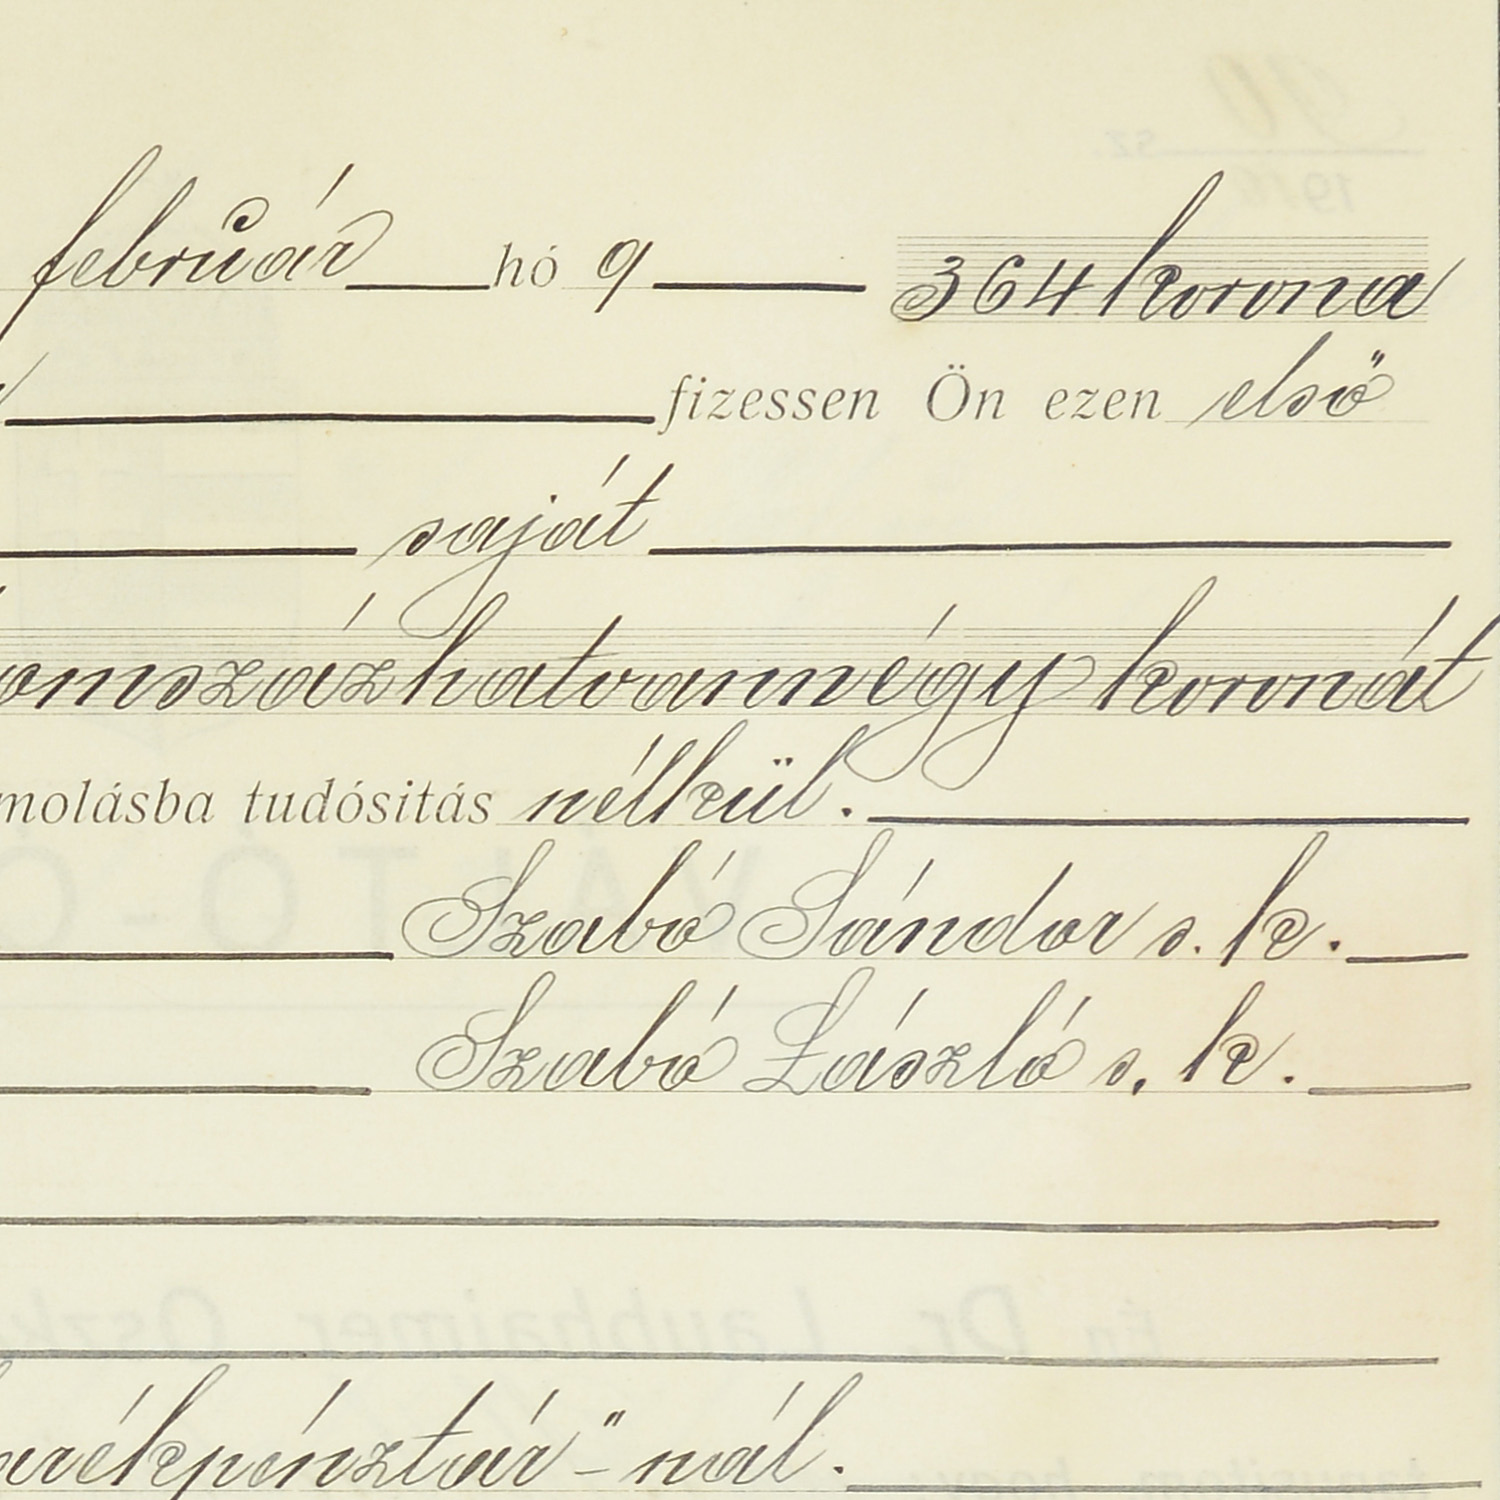 február hó 9 364 korona
fizessen Ön ezen első
saját
omszázhatvannégy koronát
molásba tudósitás nélkül.
Szabó Sándor s. k.
Szabó László s. k.
arékpénztár"-nál.